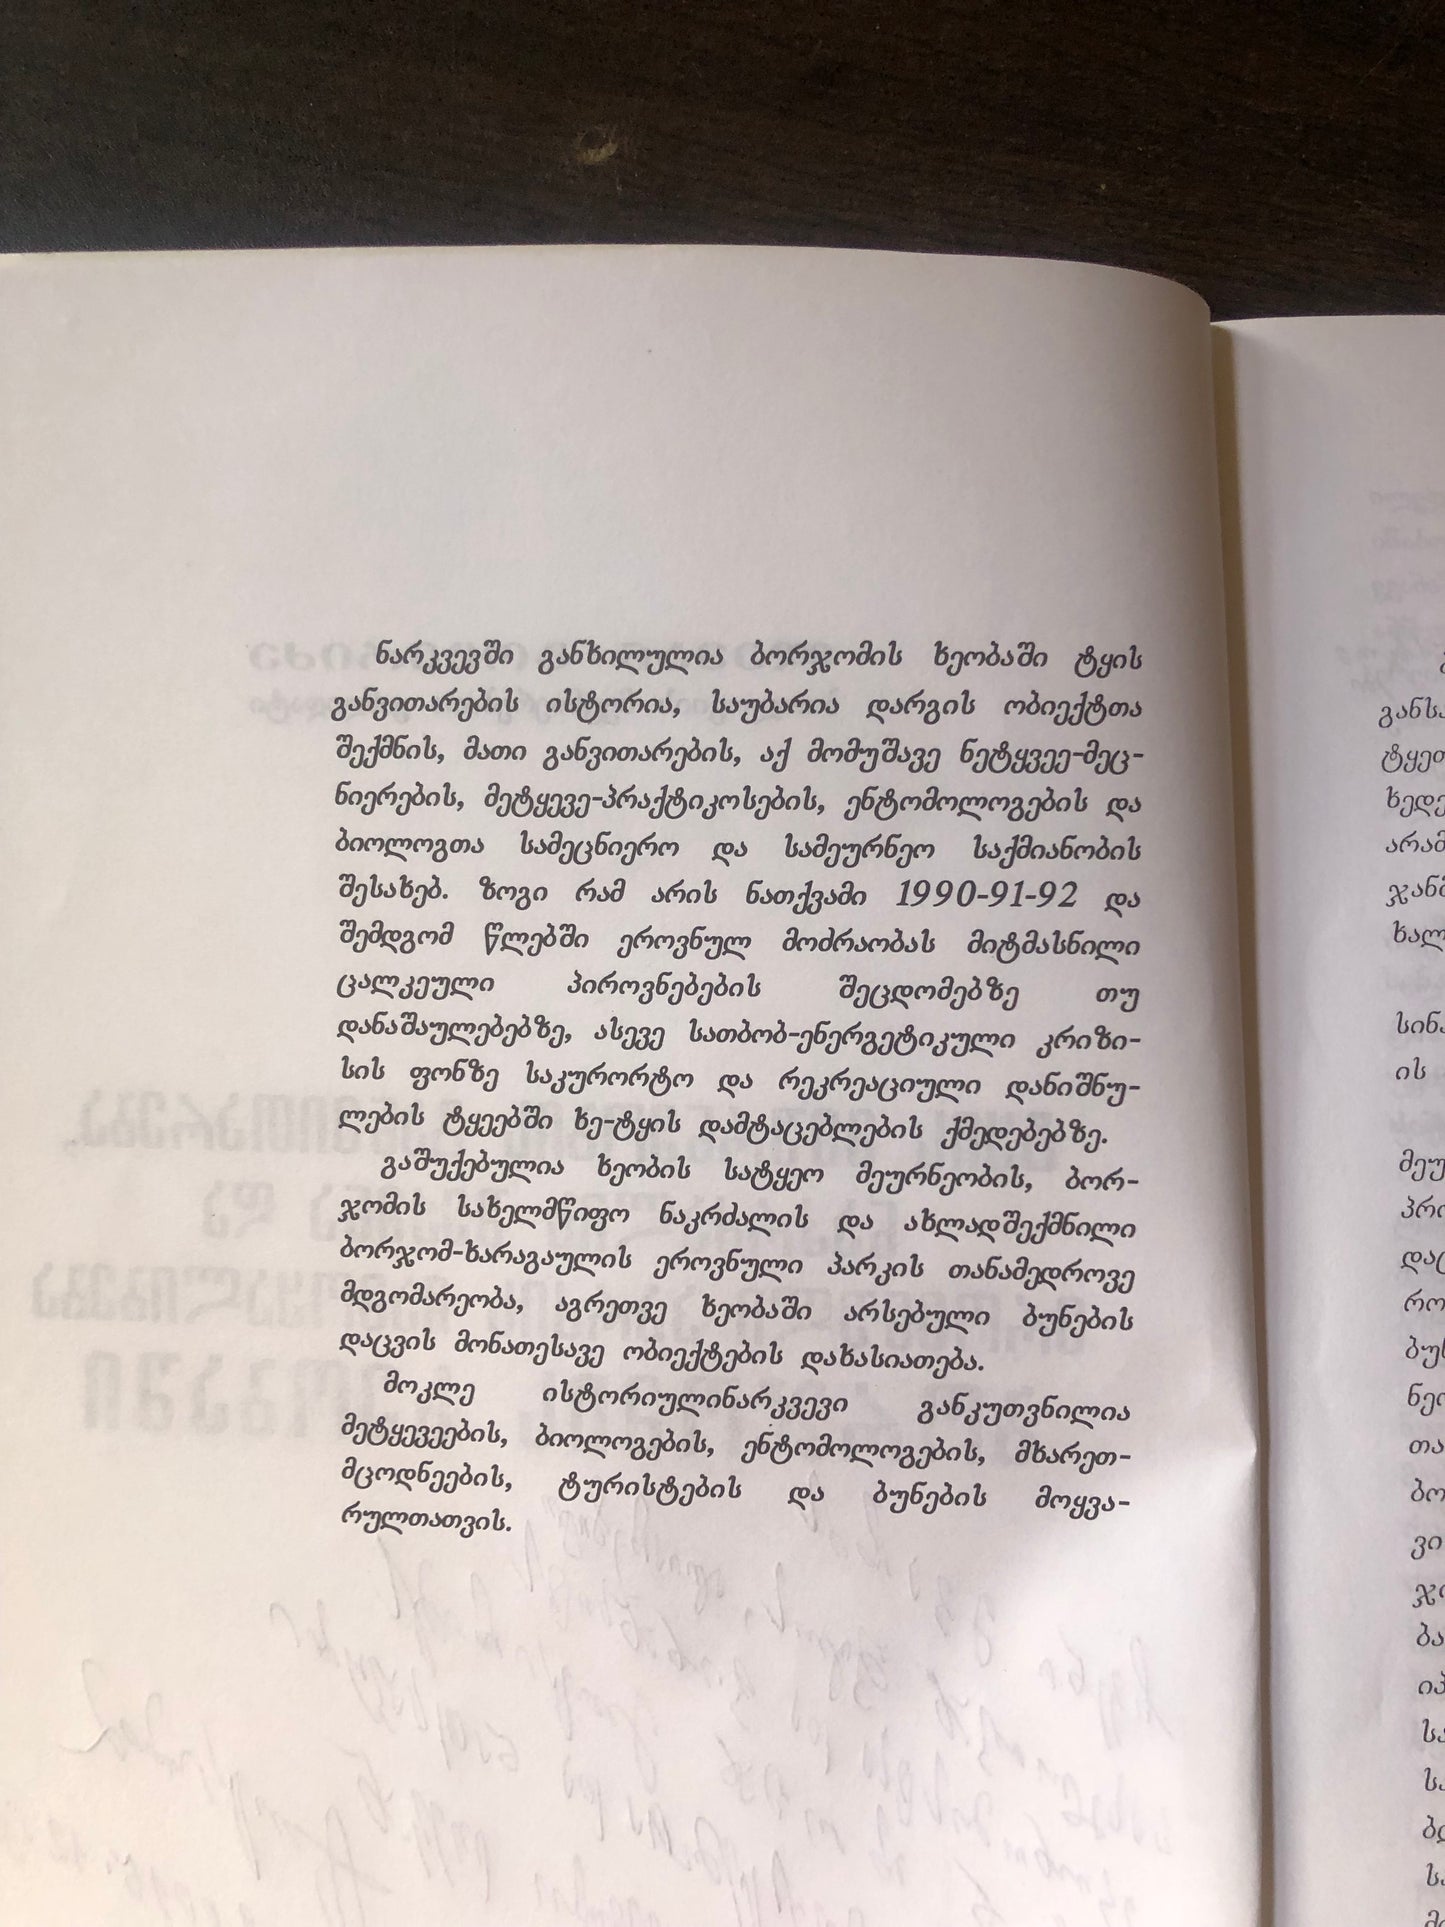 ნარკვევში განხილულია ბორჯომის ხეობაში ტყის
განვითარების ისტორია, საუბარია დარგის ობიექტთა
შექმნის, მათი განვითარების, აქ მომუშავე ნეტყვეე-მეც-
ნიერების, მეტყევე-პრაქტიკოსების, ენტომოლოგების და
ბიოლოგთა სამეცნიერო და სამეურნეო საქმიანობის
შესახებ. ზოგი რამ არის ნათქვამი 1990-91-92 და
შემდგომ წლებში ეროვნულ მოძრაობას მიტმასნილი
ცალკეული პიროვნებების შეცდომებზე თუ
დანაშაულებებზე, ასევე სათბობ-ენერგეტიკული კრიზი-
სის ფონზე საკურორტო და რეკრეაციული დანიშნუ-
ლების ტყეებში ხე-ტყის დამტაცებლების ქმედებებზე.
გაშუქებულია ხეობის სატყეო მეურნეობის, ბორ-
ჯომის სახელმწიფო ნაკრძალის და ახლადშექმნილი
ბორჯომ-ხარაგაულის ეროვნული პარკის თანამედროვე
მდგომარეობა, აგრეთვე ხეობაში არსებული ბუნების
დაცვის მონათესავე ობიექტების დახასიათება.
მოკლე ისტორიულინარკვევი განკუთვნილია
მეტყევეების, ბიოლოგების, ენტომოლოგების, მხარეთ-
მცოდნეების, ტურისტების და ბუნების მოყვა-
რულთათვის.